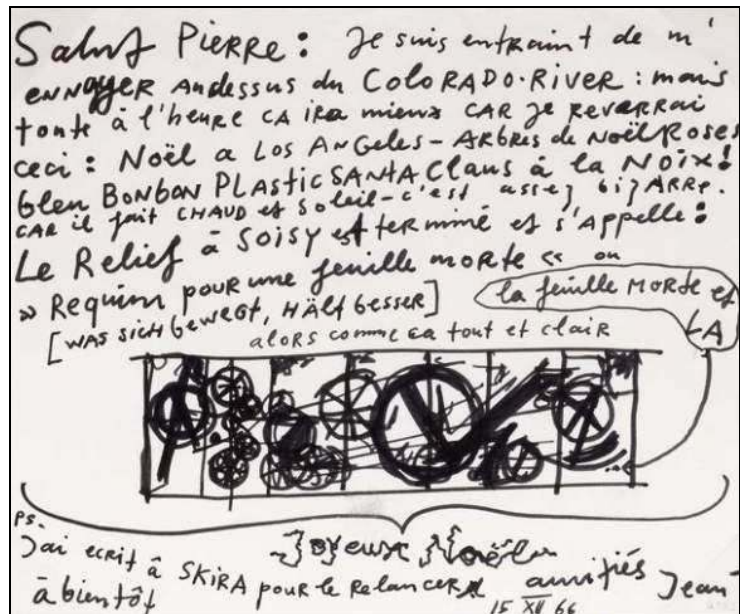 Salut Pierre: Je suis entraint de m'
ennuyer audessus du COLORADO·RIVER: mais
toute à l'heure CA ira mieux CAR je reverrai
ceci: Noël a LOS ANGeles - ARbres de Noël Roses
bleu BONBON PLASTIC SANTA Claus à la NOIX!
CAR il fait CHAUD et Soleil - c'est assez bizARRe.
Le Relief à SOISY est terminé et s'Appelle:
» Requiem pour une feuille morte « ou
[WAS SICH beweGT, HÄLT besser]
la feuille MORte est
LA
alors comme ca tout et clair
PS.
Joyeux Noël
J'ai ecrit à SKIRA pour le Relancer
à bientôt
amitiés Jean
15 XII 66